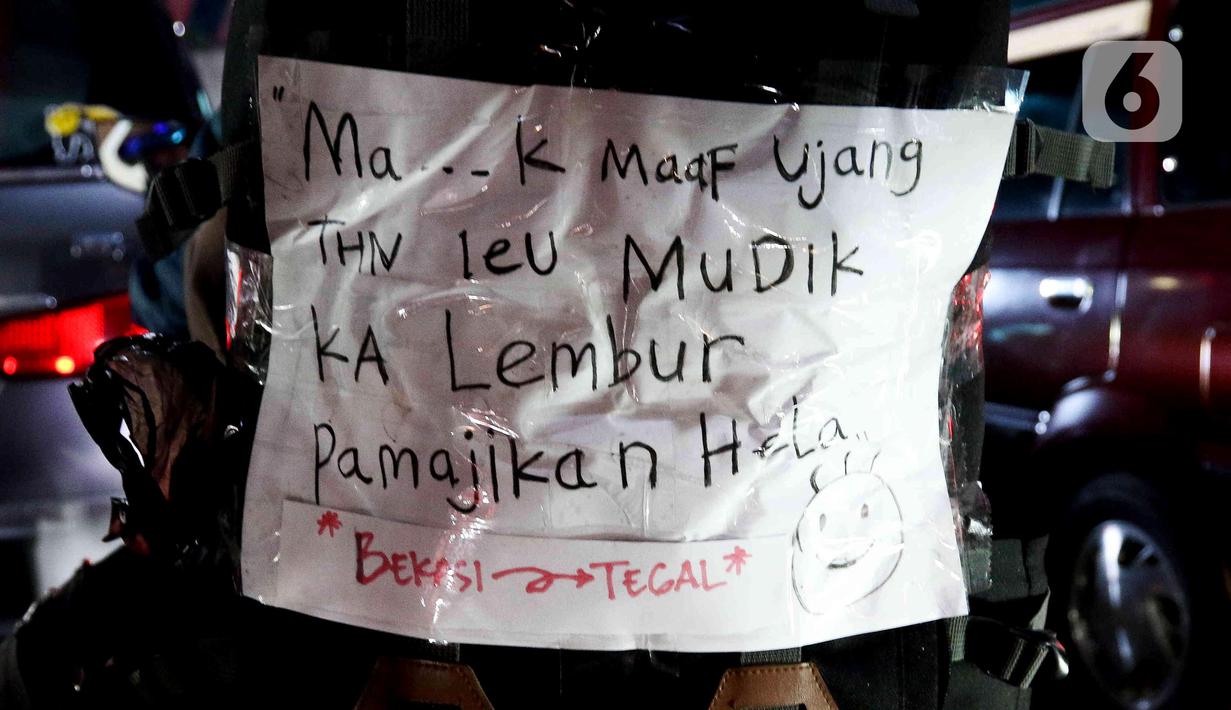 "Ma...k Maaf Ujang
THN IeU MuDIk
kA Lembur
Pamajikan HeLa..
*BEKASI → TEGAL*
6